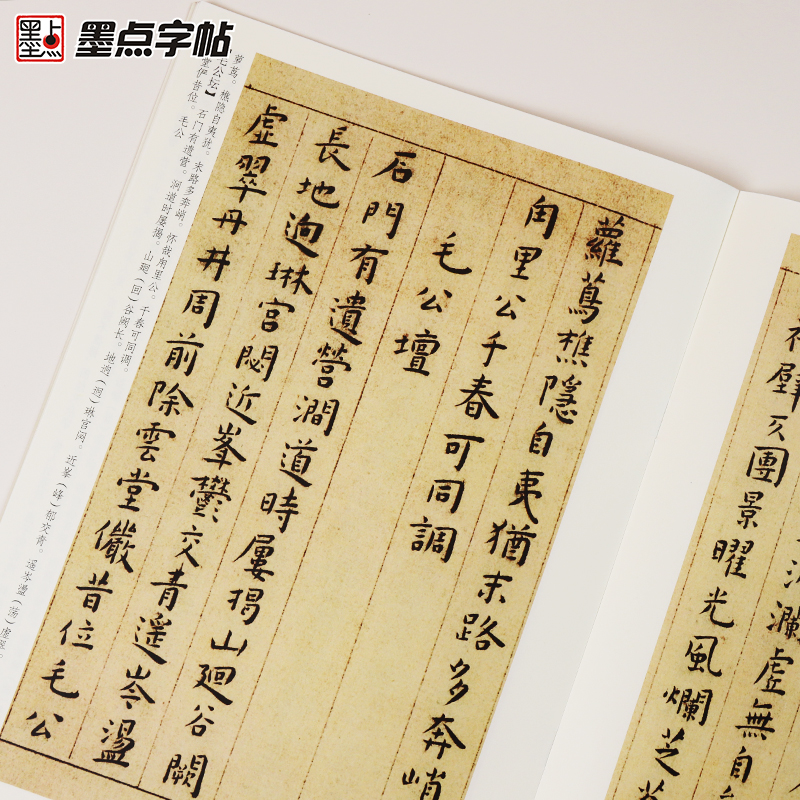 墨点
墨点字帖
萝茑。樵隐自夷犹。末路多奔峭。怀哉甪里公。千春可同调。
毛公坛】石门有遗营。涧道时屡揭。山廻（回）谷阙长。地逈（迥）琳宫闷。近峯（峰）郁交青。遥岑盪（荡）虚翠。
堂俨昔位。毛公
景曜光風爛芝
瀾虛無自
蘿蔦樵隱自夷猶末路多奔峭
甪里公千春可同調
毛公壇
石門有遺營澗道時屢揭山廻谷闕
長地逈琳宮閟近峯鬱交青遙岑盪
虛翠丹井周前除雲堂儼昔位毛公